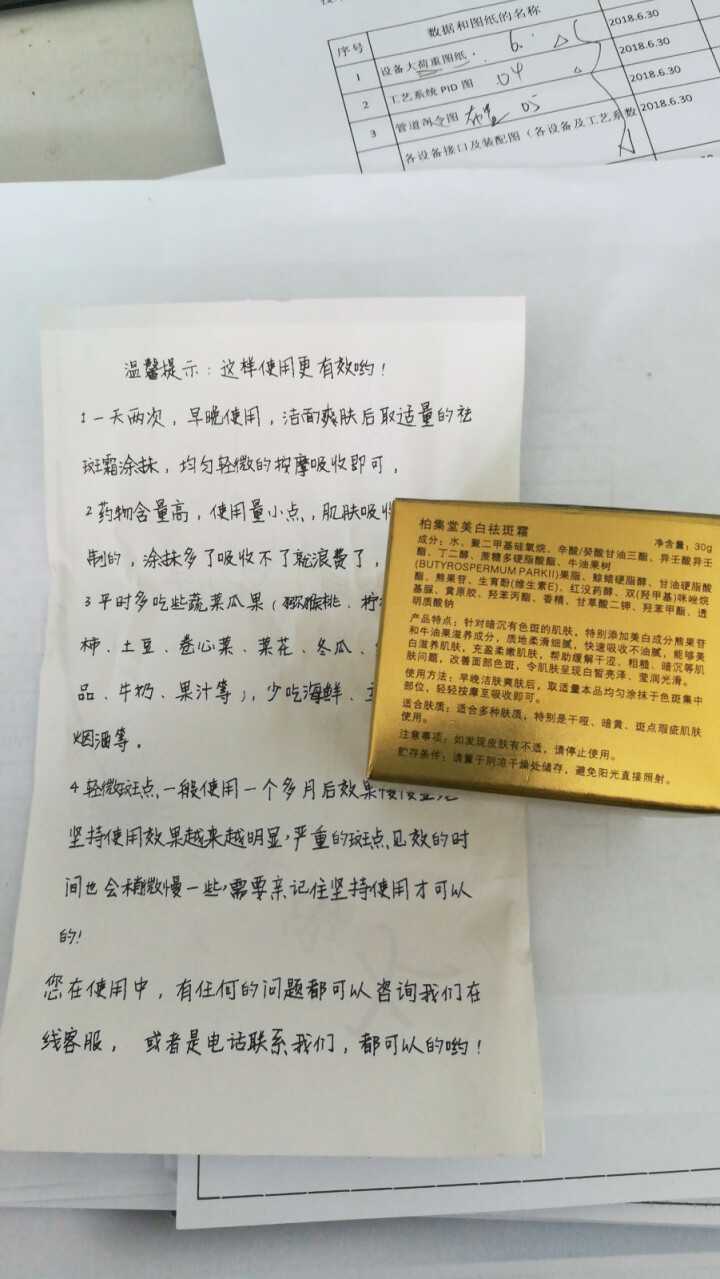 数据和图纸的名称
序号
1 设备大荷重图纸 6. 2018.6.30
2 工艺系统PID图 04 2018.6.30
3 管道阀令图 05 2018.6.30
各设备接口及装配图（各设备及工艺系数 2018.6.30
温馨提示：这样使用更有效哟！
1 一天两次，早晚使用，洁面爽肤后取适量的祛
斑霜涂抹，均匀轻微的按摩吸收即可，
2 药物含量高，使用量小点，肌肤吸收
制的，涂抹多了吸收不了就浪费了，
3 平时多吃些蔬菜瓜果（猕猴桃、柠
柿、土豆、卷心菜、菜花、冬瓜、
品、牛奶、果汁等），少吃海鲜、
烟酒等。
4 轻微斑点一般使用一个多月后效果慢慢显
坚持使用效果越来越明显，严重的斑点见效的时
间也会稍微慢一些，需要亲记住坚持使用才可以
的！
您在使用中，有任何的问题都可以咨询我们在
线客服， 或者是电话联系我们，都可以的哟！
柏集堂美白祛斑霜
净含量：30g
成分：水、聚二甲基硅氧烷、辛酸/癸酸甘油三酯、异壬酸异壬
酯、丁二醇、蔗糖多硬脂酸酯、牛油果树
(BUTYROSPERMUM PARKII)果脂、鲸蜡硬脂醇、甘油硬脂酸
酯、熊果苷、生育酚(维生素E)、红没药醇、双(羟甲基)咪唑烷
基脲、黄原胶、羟苯丙酯、香精、甘草酸二钾、羟苯甲酯、透
明质酸钠
产品特点：针对暗沉有色斑的肌肤，特别添加美白成分熊果苷
和牛油果滋养成分，质地柔滑细腻，快速吸收不油腻，能够美
白滋养肌肤，充盈柔嫩肌肤，帮助缓解干涩、粗糙、暗沉等肌
肤问题，改善面部色斑，令肌肤呈现白皙亮泽、莹润光滑。
使用方法：早晚洁肤爽肤后，取适量本品均匀涂抹于色斑集中
部位，轻轻按摩至吸收即可。
适合肤质：适合多种肤质，特别是干哑、暗黄、斑点瑕疵肌肤
使用。
注意事项：如发现皮肤有不适，请停止使用。
贮存条件：请置于阴凉干燥处储存，避免阳光直接照射。